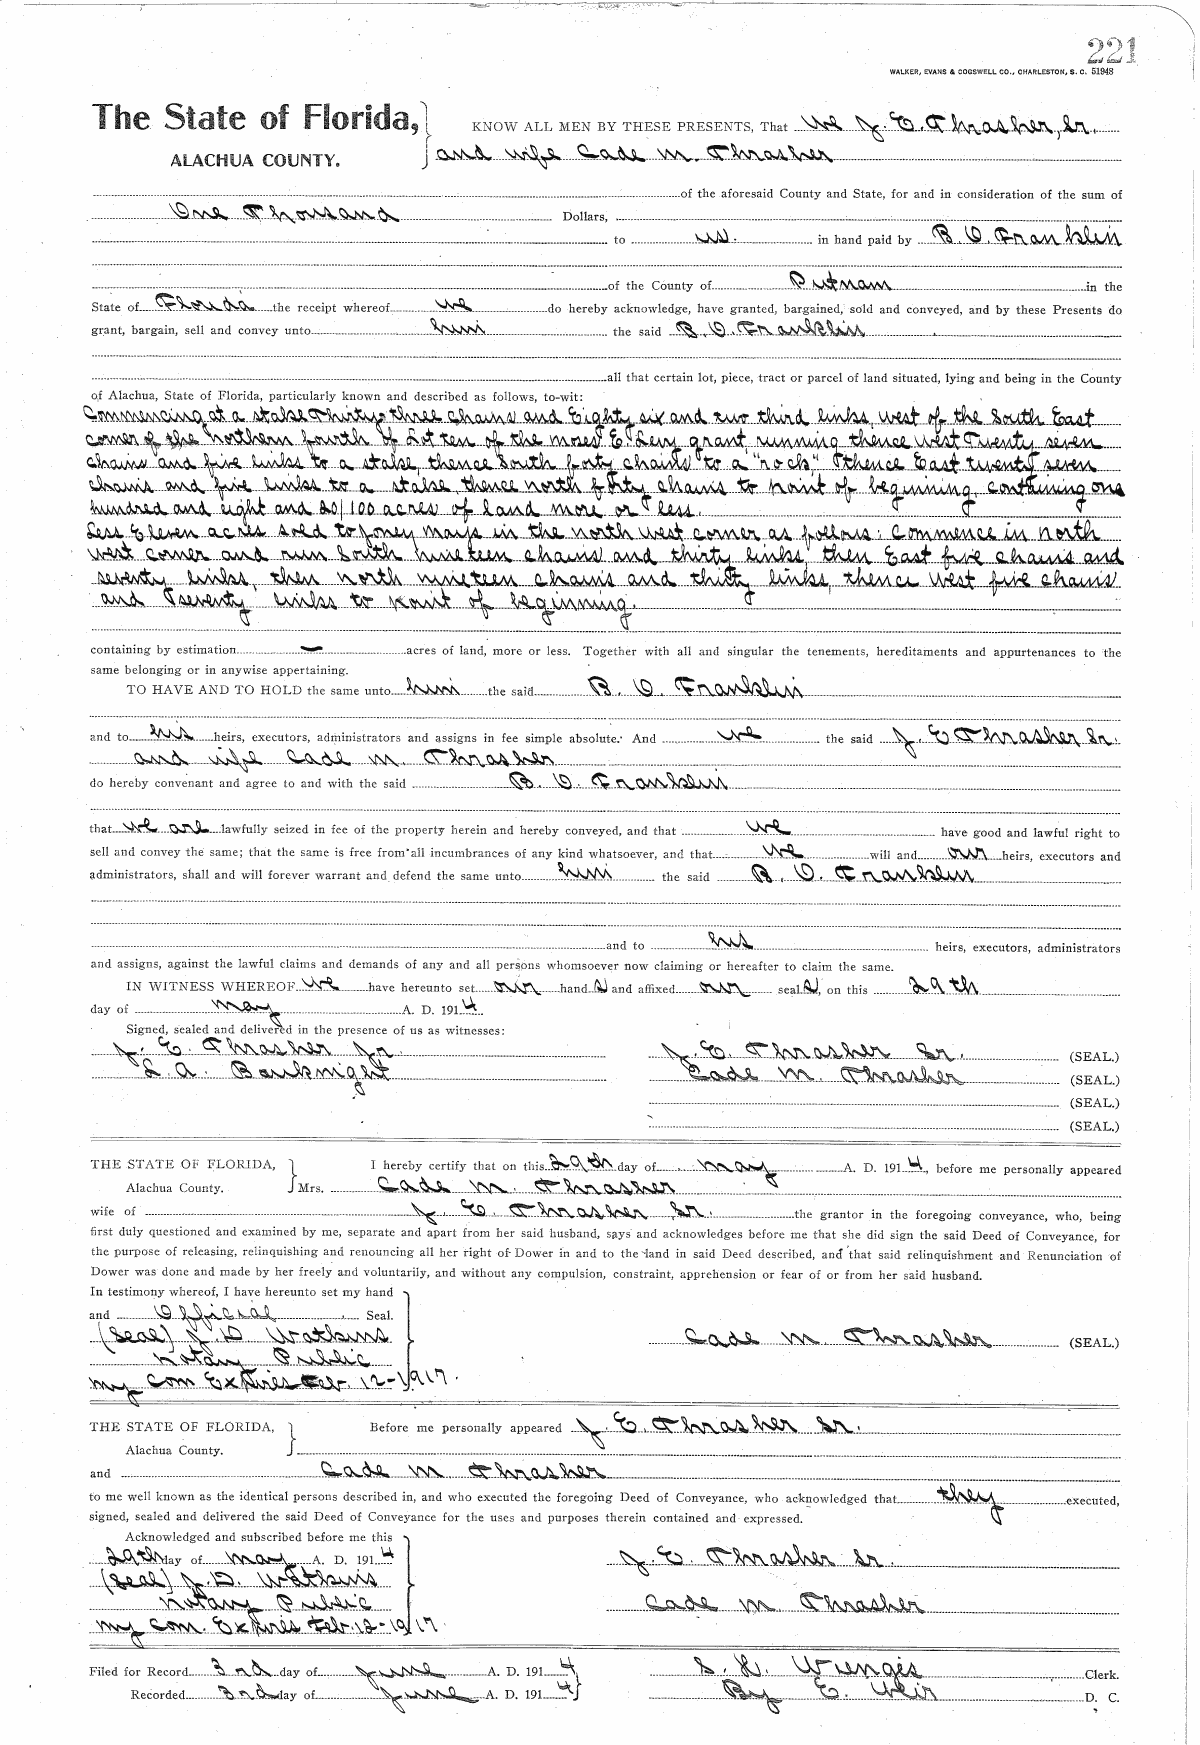 221
WALKER, EVANS & COGSWELL CO., CHARLESTON, S. C. 51948
The State of Florida, KNOW ALL MEN BY THESE PRESENTS, That We J. E. Thrasher, Sr.
ALACHUA COUNTY. and wife Cade M. Thrasher
of the aforesaid County and State, for and in consideration of the sum of
One Thousand Dollars,
to us. in hand paid by B. O. Franklin
of the County of Putnam in the
State of Florida the receipt whereof we do hereby acknowledge, have granted, bargained, sold and conveyed, and by these Presents do
grant, bargain, sell and convey unto him the said B. O. Franklin
all that certain lot, piece, tract or parcel of land situated, lying and being in the County
of Alachua, State of Florida, particularly known and described as follows, to-wit:
Commencing at a stake Thirty three chains and Eighty six and two third links west of the South East
corner of the northern fourth of Lot ten of the moses E Levy grant running thence West Twenty seven
chains and five links to a stake, thence South forty chains to a "rock" thence East twenty seven
chains and five links to a stake, thence north forty chains to point of beginning, containing one
hundred and eight and 20/100 acres of land more or less.
Less Eleven acres sold to Joney Mays in the north west corner as follows: Commence in north
west corner and run South nineteen chains and thirty links, then East five chains and
seventy links, then north nineteen chains and thitty links, thence West five chains
and seventy links to point of beginning.
containing by estimation — acres of land, more or less. Together with all and singular the tenements, hereditaments and appurtenances to the
same belonging or in anywise appertaining.
TO HAVE AND TO HOLD the same unto him the said B. O. Franklin
and to his heirs, executors, administrators and assigns in fee simple absolute. And we the said J. E Thrasher Sr.
and wife Cade M. Thrasher
do hereby convenant and agree to and with the said B. O. Franklin
that we are lawfully seized in fee of the property herein and hereby conveyed, and that we have good and lawful right to
sell and convey the same; that the same is free from all incumbrances of any kind whatsoever, and that we will and our heirs, executors and
administrators, shall and will forever warrant and defend the same unto him the said B. O. Franklin
and to his heirs, executors, administrators
and assigns, against the lawful claims and demands of any and all persons whomsoever now claiming or hereafter to claim the same.
IN WITNESS WHEREOF We have hereunto set our hand s and affixed our seal s, on this 29th
day of May A. D. 1914.
Signed, sealed and delivered in the presence of us as witnesses:
J. E. Thrasher Jr. J. E. Thrasher Sr. (SEAL.)
L. A. Bauknight Cade M. Thrasher (SEAL.)
(SEAL.)
(SEAL.)
THE STATE OF FLORIDA, I hereby certify that on this 29th day of May A. D. 1914, before me personally appeared
Alachua County. Mrs. Cade M. Thrasher
wife of J. E. Thrasher Sr. the grantor in the foregoing conveyance, who, being
first duly questioned and examined by me, separate and apart from her said husband, says and acknowledges before me that she did sign the said Deed of Conveyance, for
the purpose of releasing, relinquishing and renouncing all her right of Dower in and to the land in said Deed described, and that said relinquishment and Renunciation of
Dower was done and made by her freely and voluntarily, and without any compulsion, constraint, apprehension or fear of or from her said husband.
In testimony whereof, I have hereunto set my hand
and Official Seal.
(Seal) J. D Watkins Cade M Thrasher (SEAL.)
Notary Public
my Com Expires Feb 12-1917.
THE STATE OF FLORIDA, Before me personally appeared J. E. Thrasher Sr.
Alachua County.
and Cade M Thrasher
to me well known as the identical persons described in, and who executed the foregoing Deed of Conveyance, who acknowledged that they executed,
signed, sealed and delivered the said Deed of Conveyance for the uses and purposes therein contained and expressed.
Acknowledged and subscribed before me this
29th day of May A. D. 1914 J. E. Thrasher Sr.
(Seal) J. D. Watkins
Notary Public Cade M Thrasher
my Com. Expires Feb. 12-1917.
Filed for Record 3rd day of June A. D. 1914 S. H. Wienges Clerk.
Recorded 3rd day of June A. D. 1914 By E. Weir D. C.